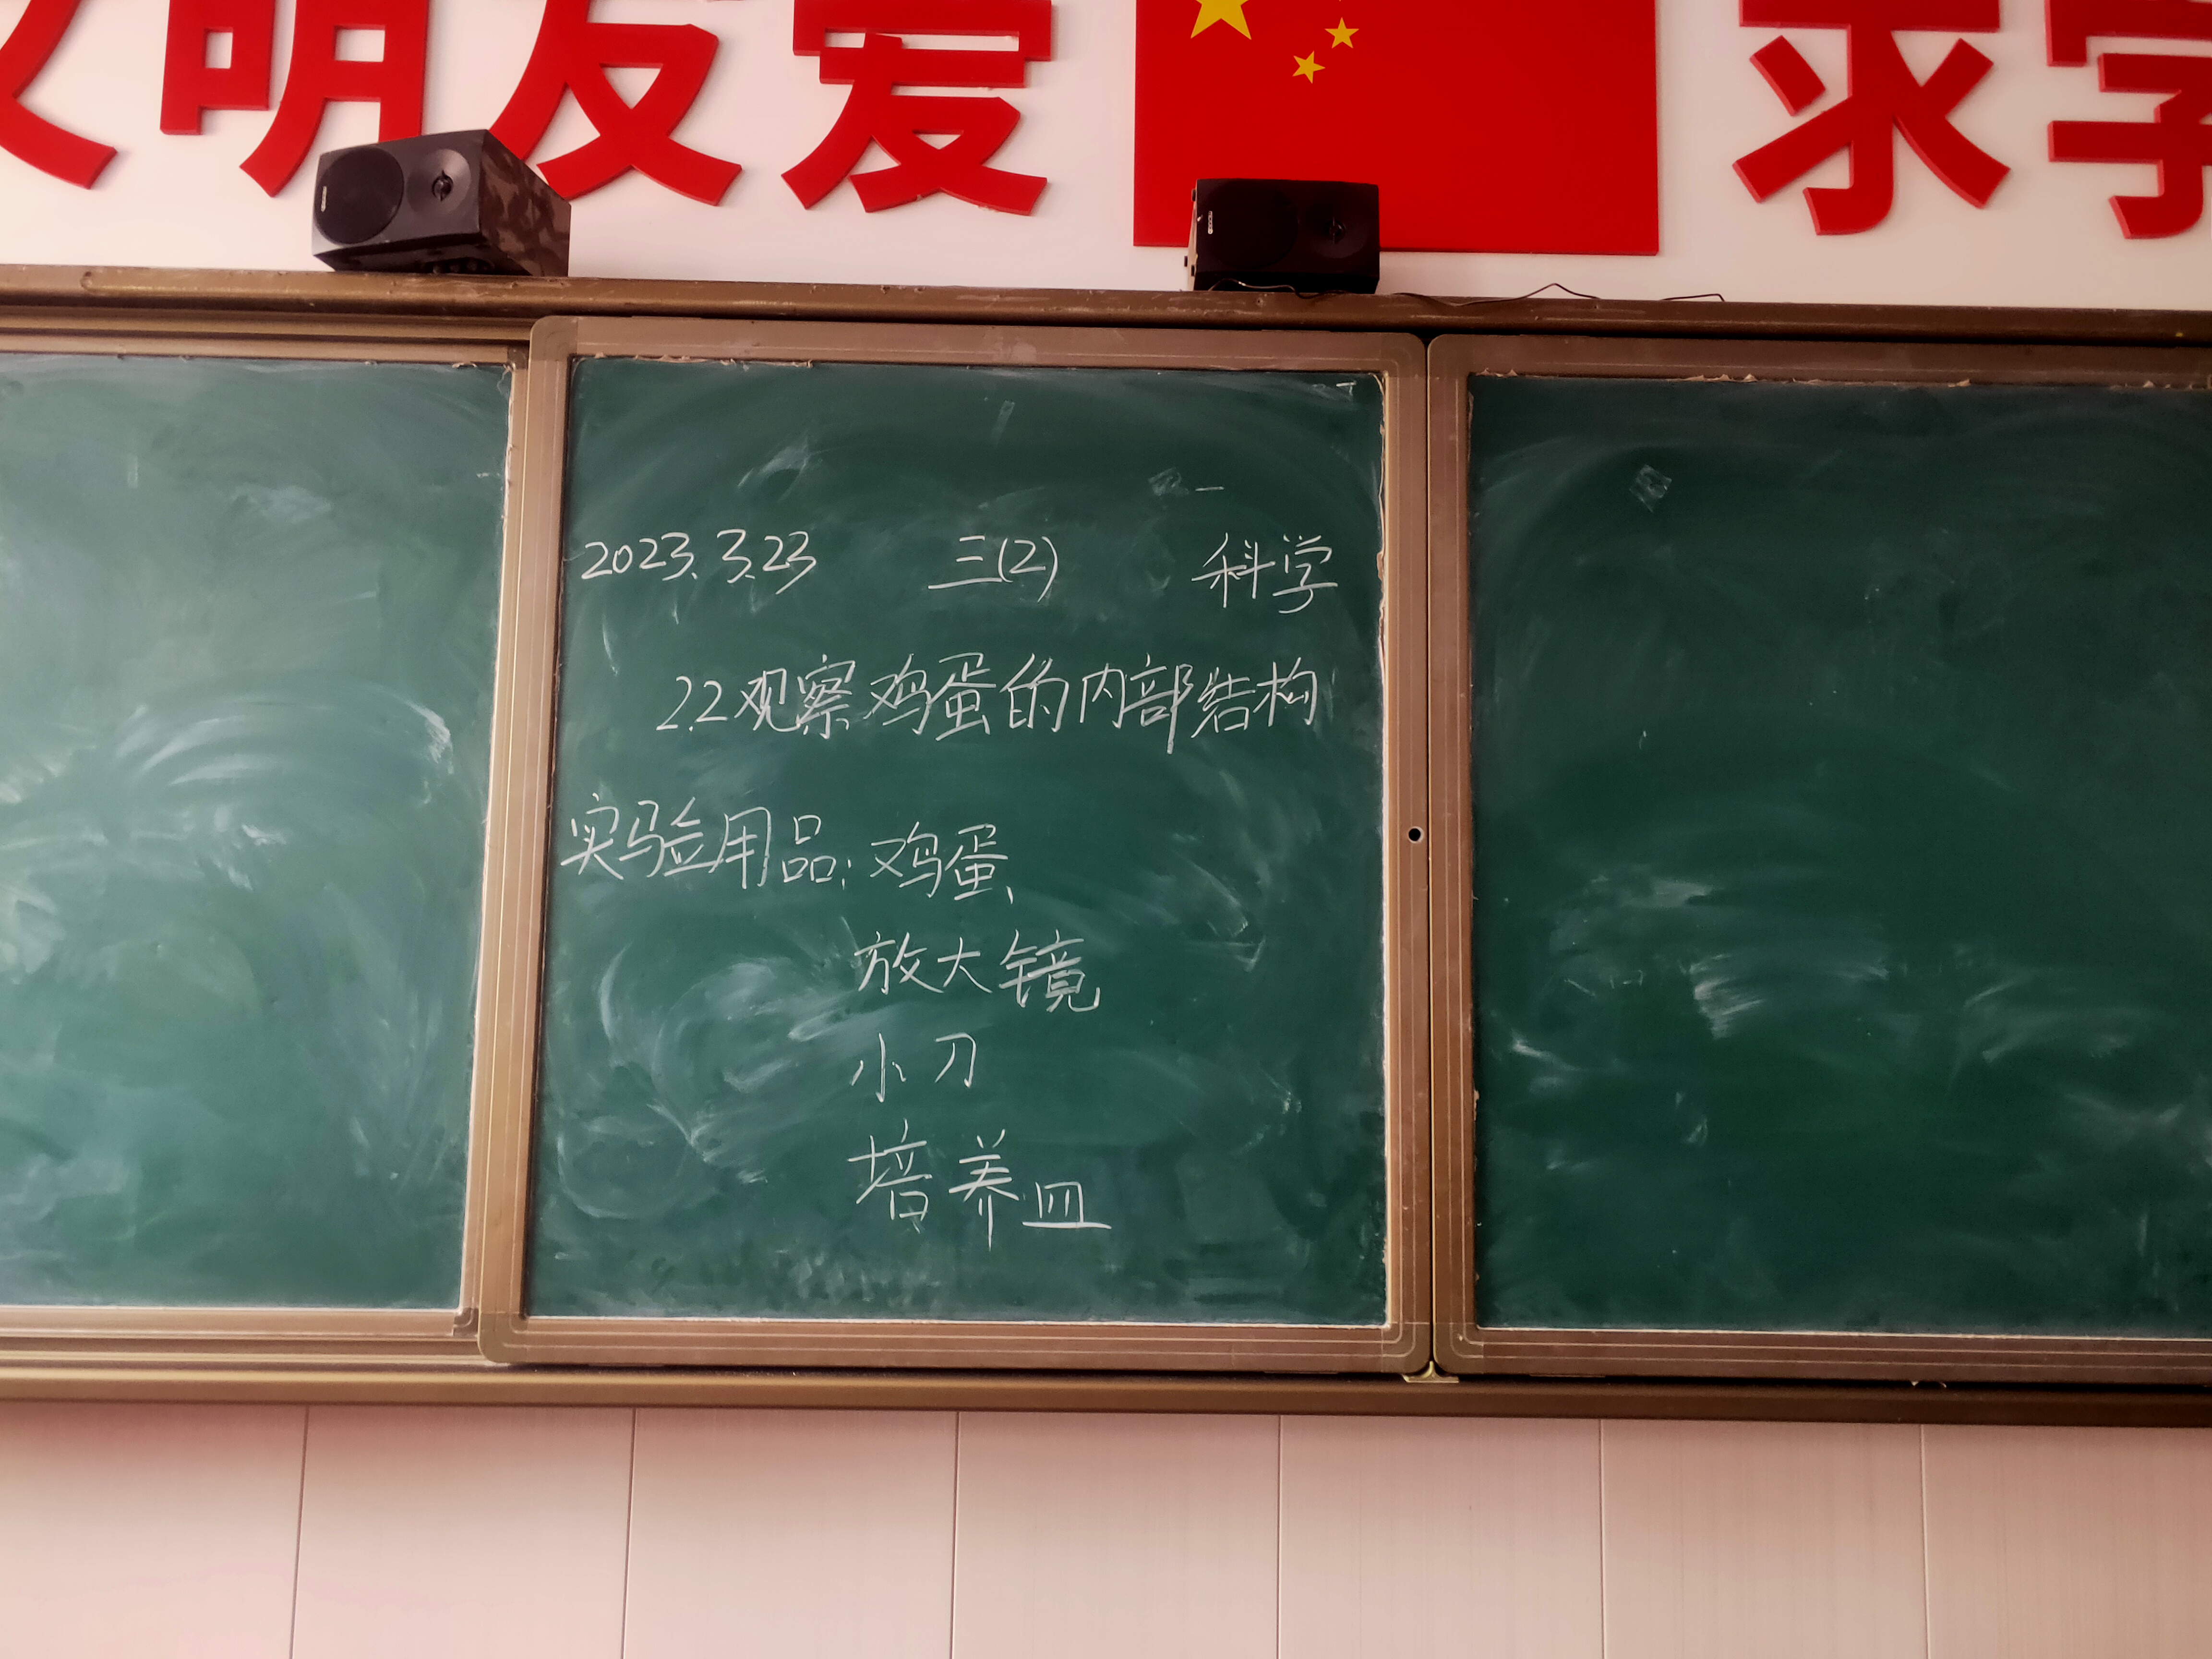 文明友爱 求学
2023.3.23 三(2) 科学
2.2观察鸡蛋的内部结构
实验用品:鸡蛋、
放大镜
小刀
培养皿